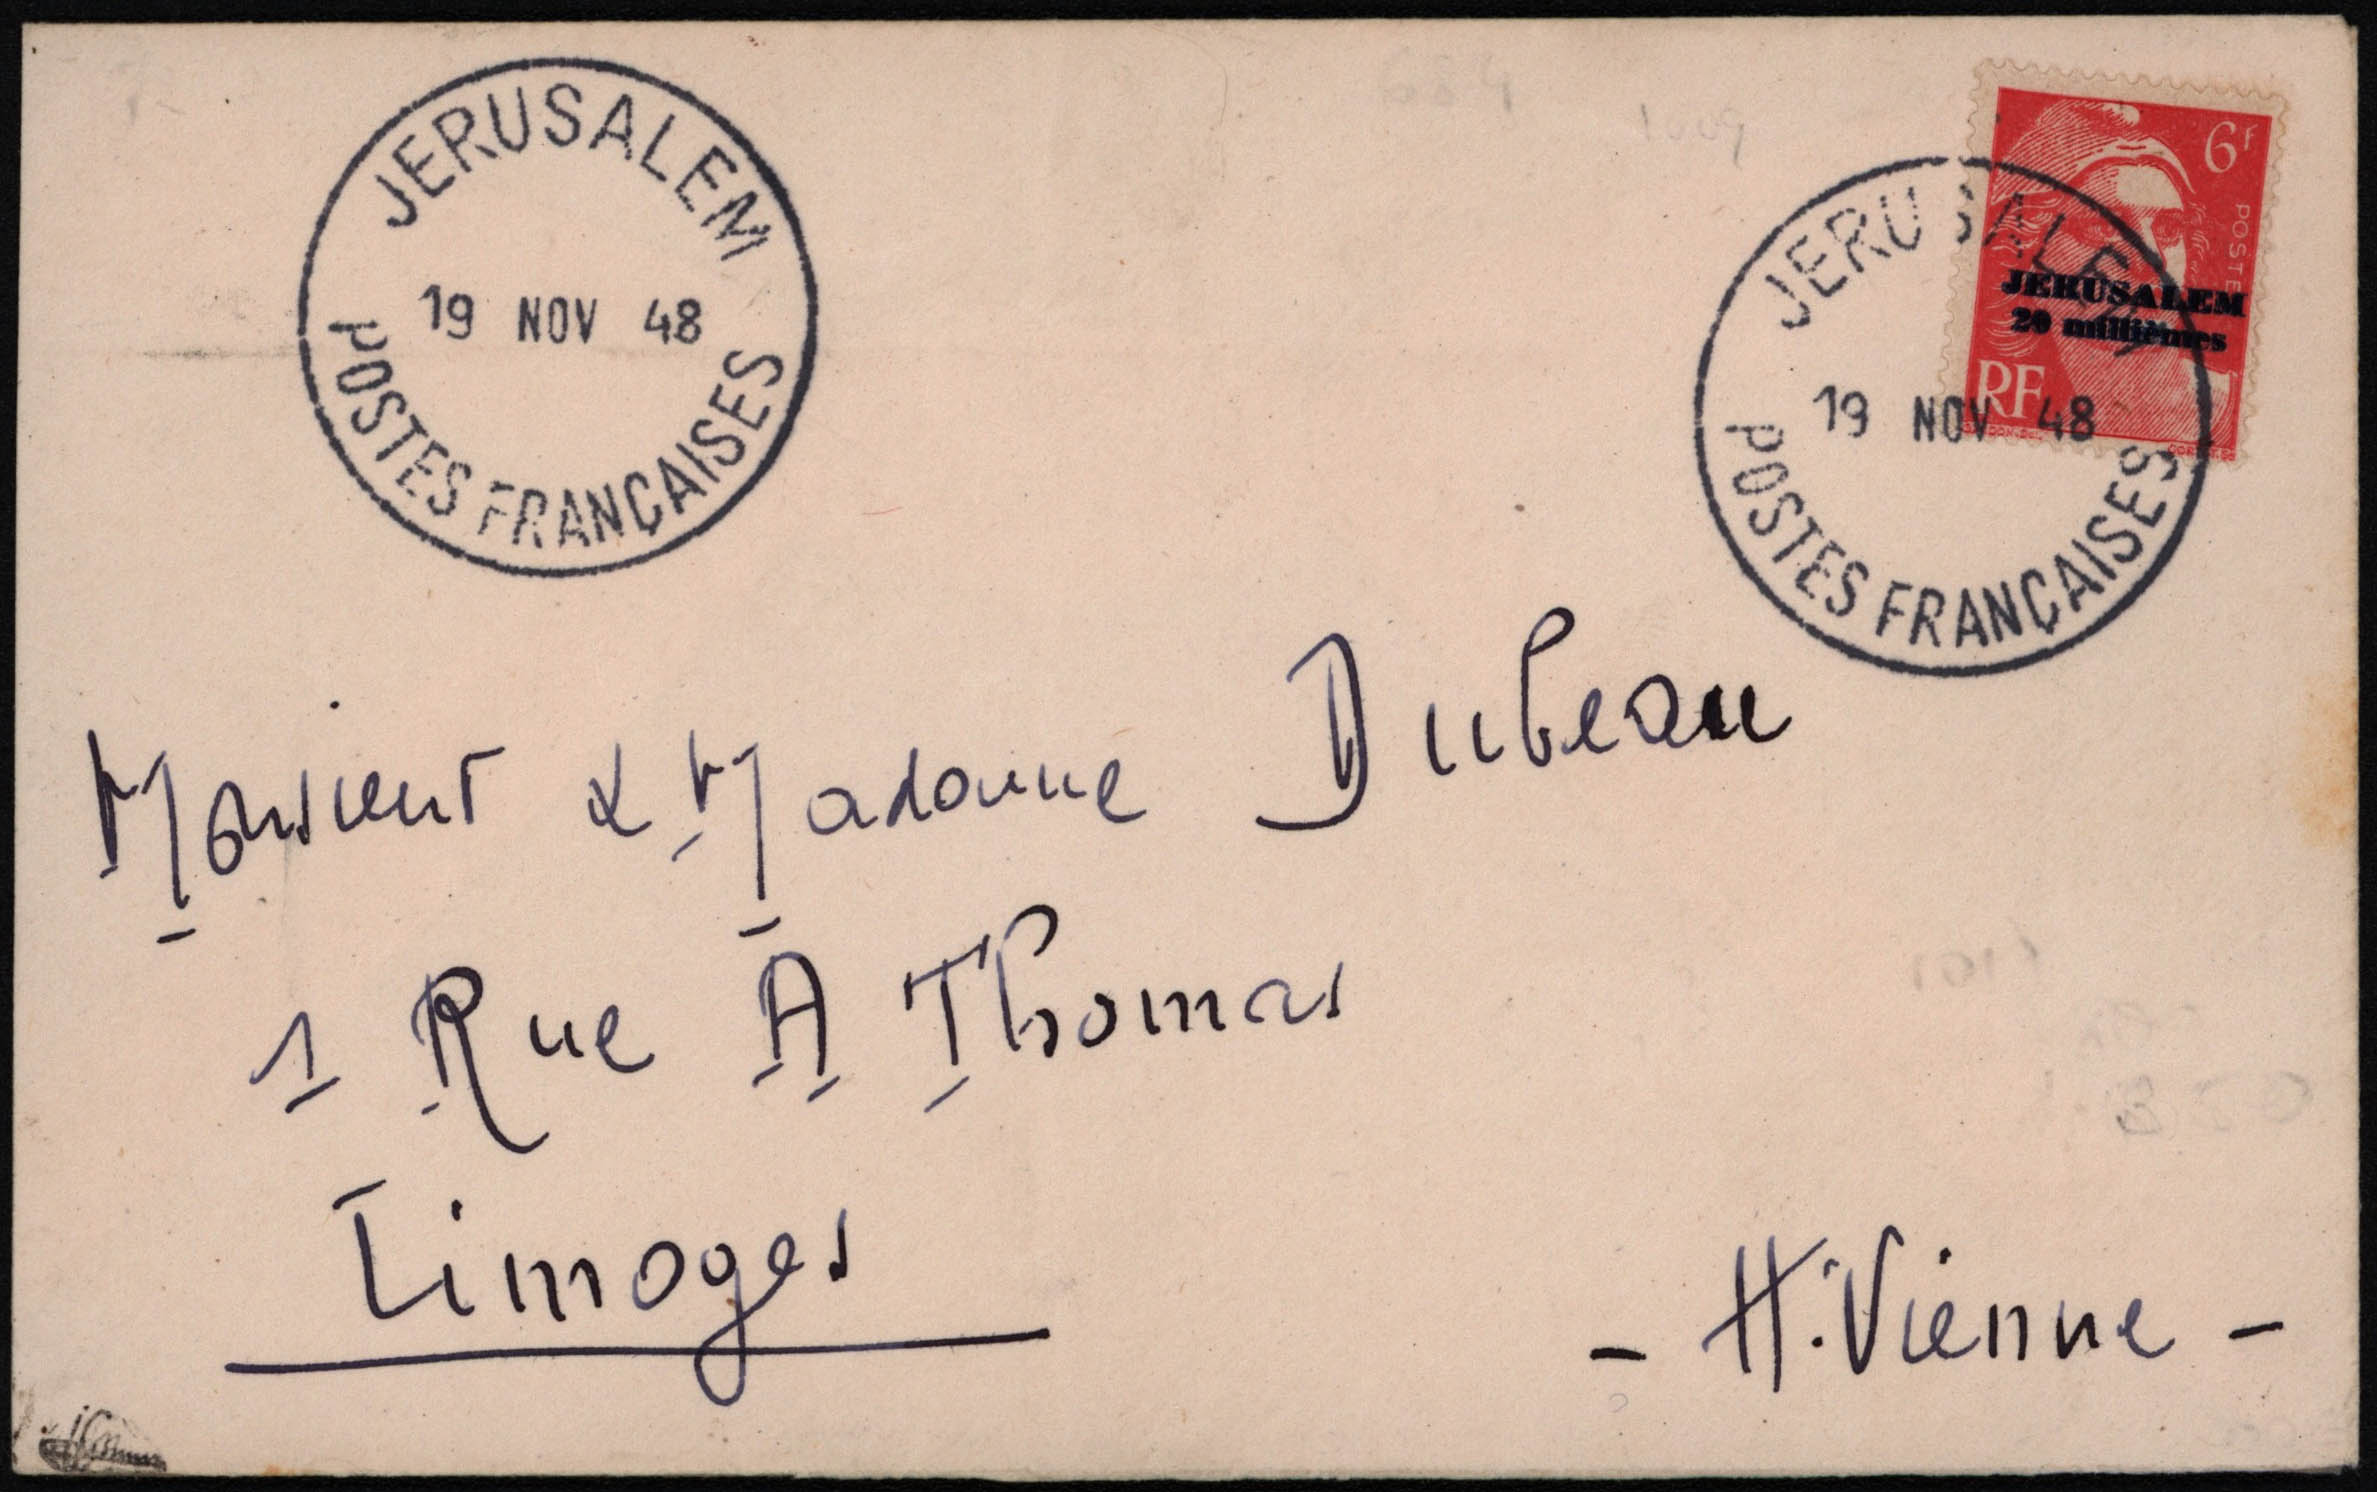 JERUSALEM
19 NOV 48
POSTES FRANÇAISES
6F
POSTES
JERUSALEM
20 millièmes
RF
JERUSALEM
19 NOV 48
POSTES FRANÇAISES
Monsieur & Madame Dubeau
1 Rue A Thomas
Limoges
- H.Vienne -